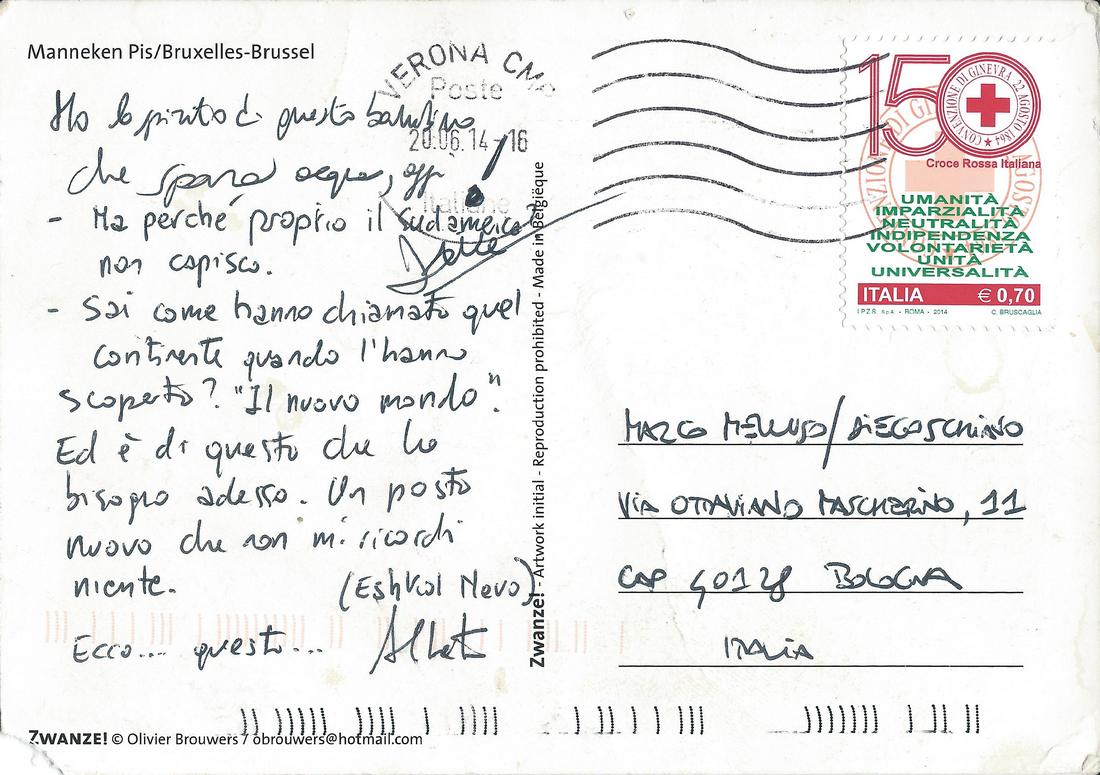 Manneken Pis/Bruxelles-Brussel
VERONA CMP
Poste
20.06.14-16
italiane
Ho lo spirito di questo bambino
che spara acqua, oggi!
- Ma perché proprio il sudamerica?
non capisco.
- Sai come hanno chiamato quel
continente quando l'hanno
scoperto? "Il nuovo mondo".
Ed è di questo che ho
bisogno adesso. Un posto
nuovo che non mi ricordi
niente.
(Eshkol Nevo)
Ecco... questo...
Zwanze! - Artwork initial - Reproduction prohibited - Made in Belgièque
150
CONVENZIONE DI GINEVRA 22 AGOSTO 1864
Croce Rossa Italiana
UMANITÀ
IMPARZIALITÀ
NEUTRALITÀ
INDIPENDENZA
VOLONTARIETÀ
UNITÀ
UNIVERSALITÀ
ITALIA € 0,70
I.P.Z.S. S.p.A. - ROMA - 2014 C. BRUSCAGLIA
MARCO MELLUSO/DIEGO SCHIAVO
VIA OTTAVIANO MASCHERINO, 11
CAP 40128 BOLOGNA
ITALIA
ZWANZE! © Olivier Brouwers / obrouwers@hotmail.com